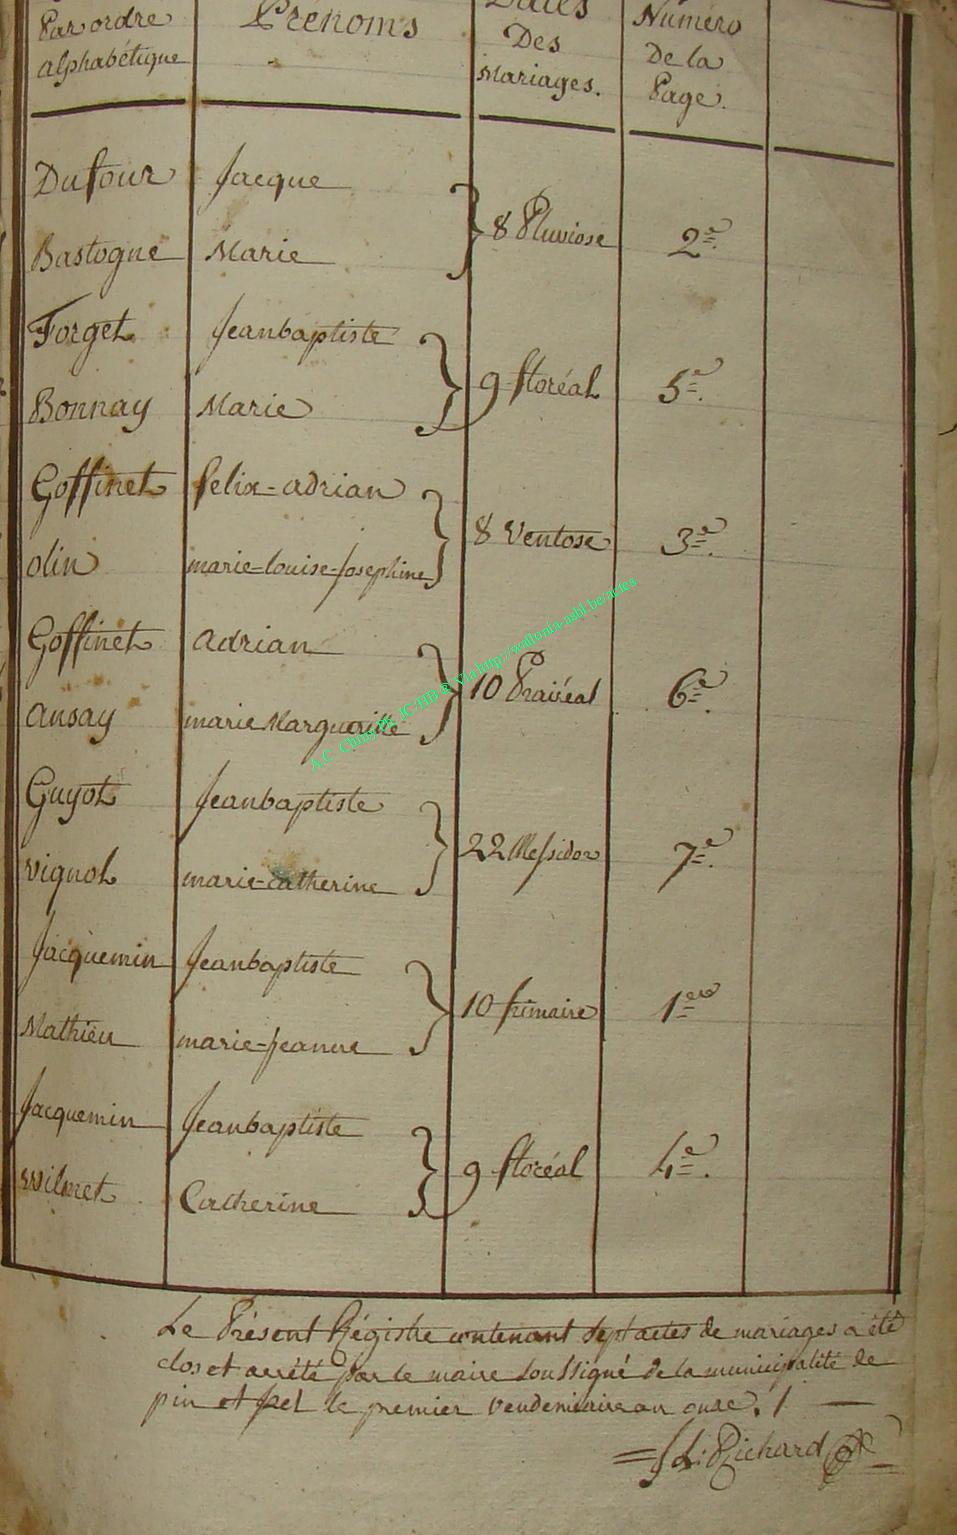 Par ordre Prénoms Dates Numéro
alphabétique Des De la
Mariages. Page.
Dufour Jacque
8 Pluviose 2e.
Bastogne Marie
Forget Jeanbaptiste
9 floréal 5e.
Bonnay Marie
Goffinet felix-adrian
8 Ventose 3e.
olin marie-louise-Josephine
Goffinet adrian
10 Prairéal 6e.
ansay marie Margueritte
A.C. Chiny Ph. JC/HB & Via http://wallonia-asbl.be/actes
Guyot Jeanbaptiste
22 Messidor 7e.
vignol marie-catherine
Jacquemin Jeanbaptiste
10 frimaire 1ere
Mathieu marie-jeanne
Jacquemin Jeanbaptiste
9 floréal 4e.
Wilmet Catherine
Le Présent Régistre contenant sept actes de mariages a été
clos et arrété par le maire soussigné de la municipalité de
pin et izel le premier vendemiaire an onze ./.
L: Richard